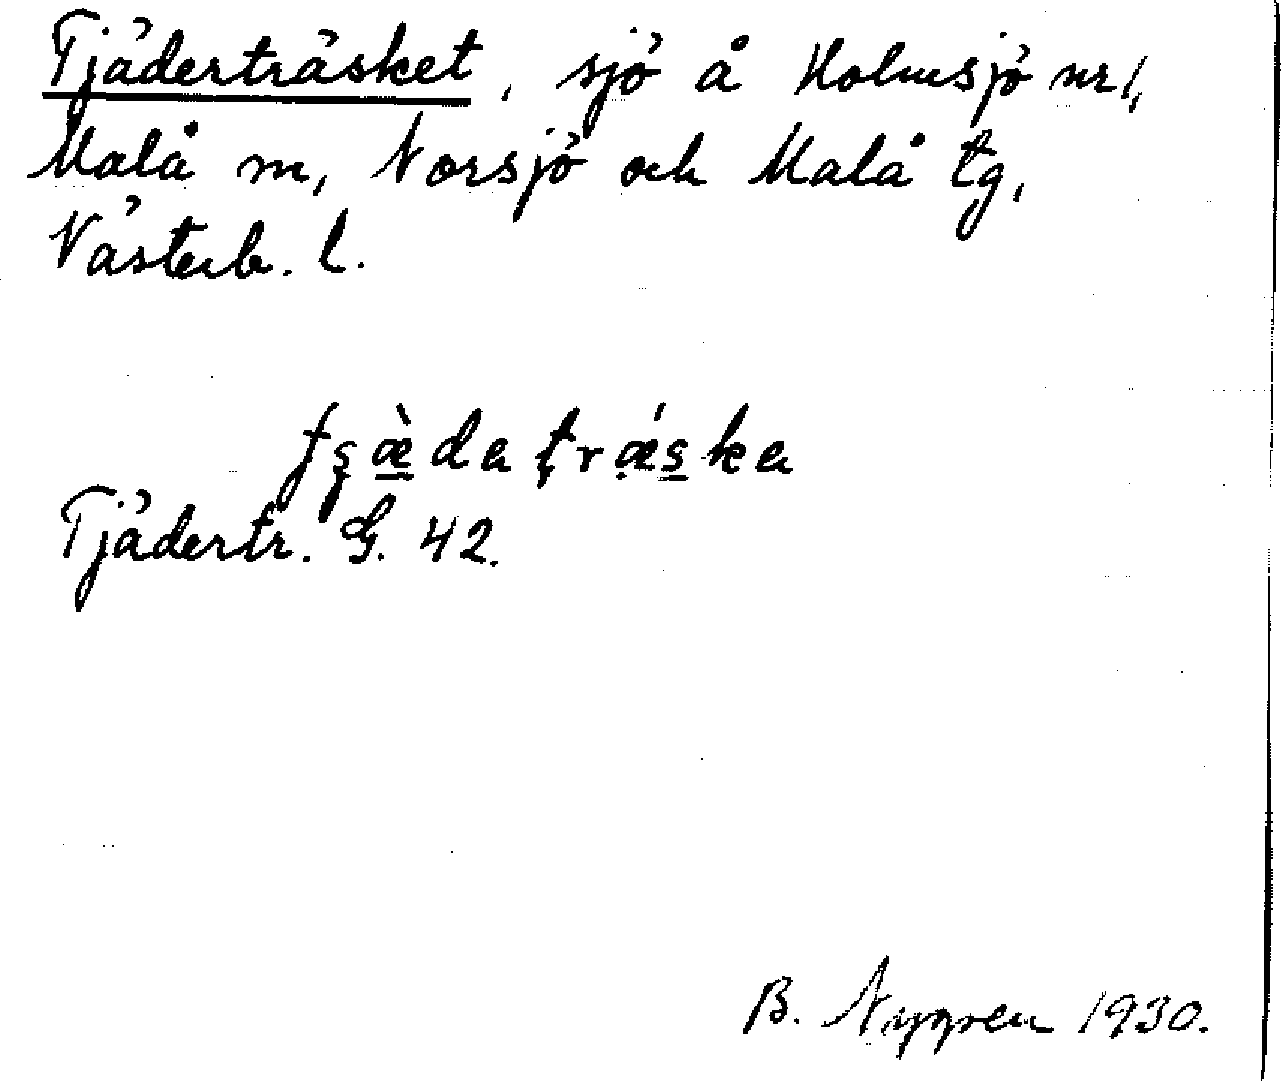 Tjäderträsket, sjö å Holmsjö nr 1,
Malå m, Norsjö och Malå tg,
Västerb. l.
Tjädertr. G. 42.
B. Nygren 1930.